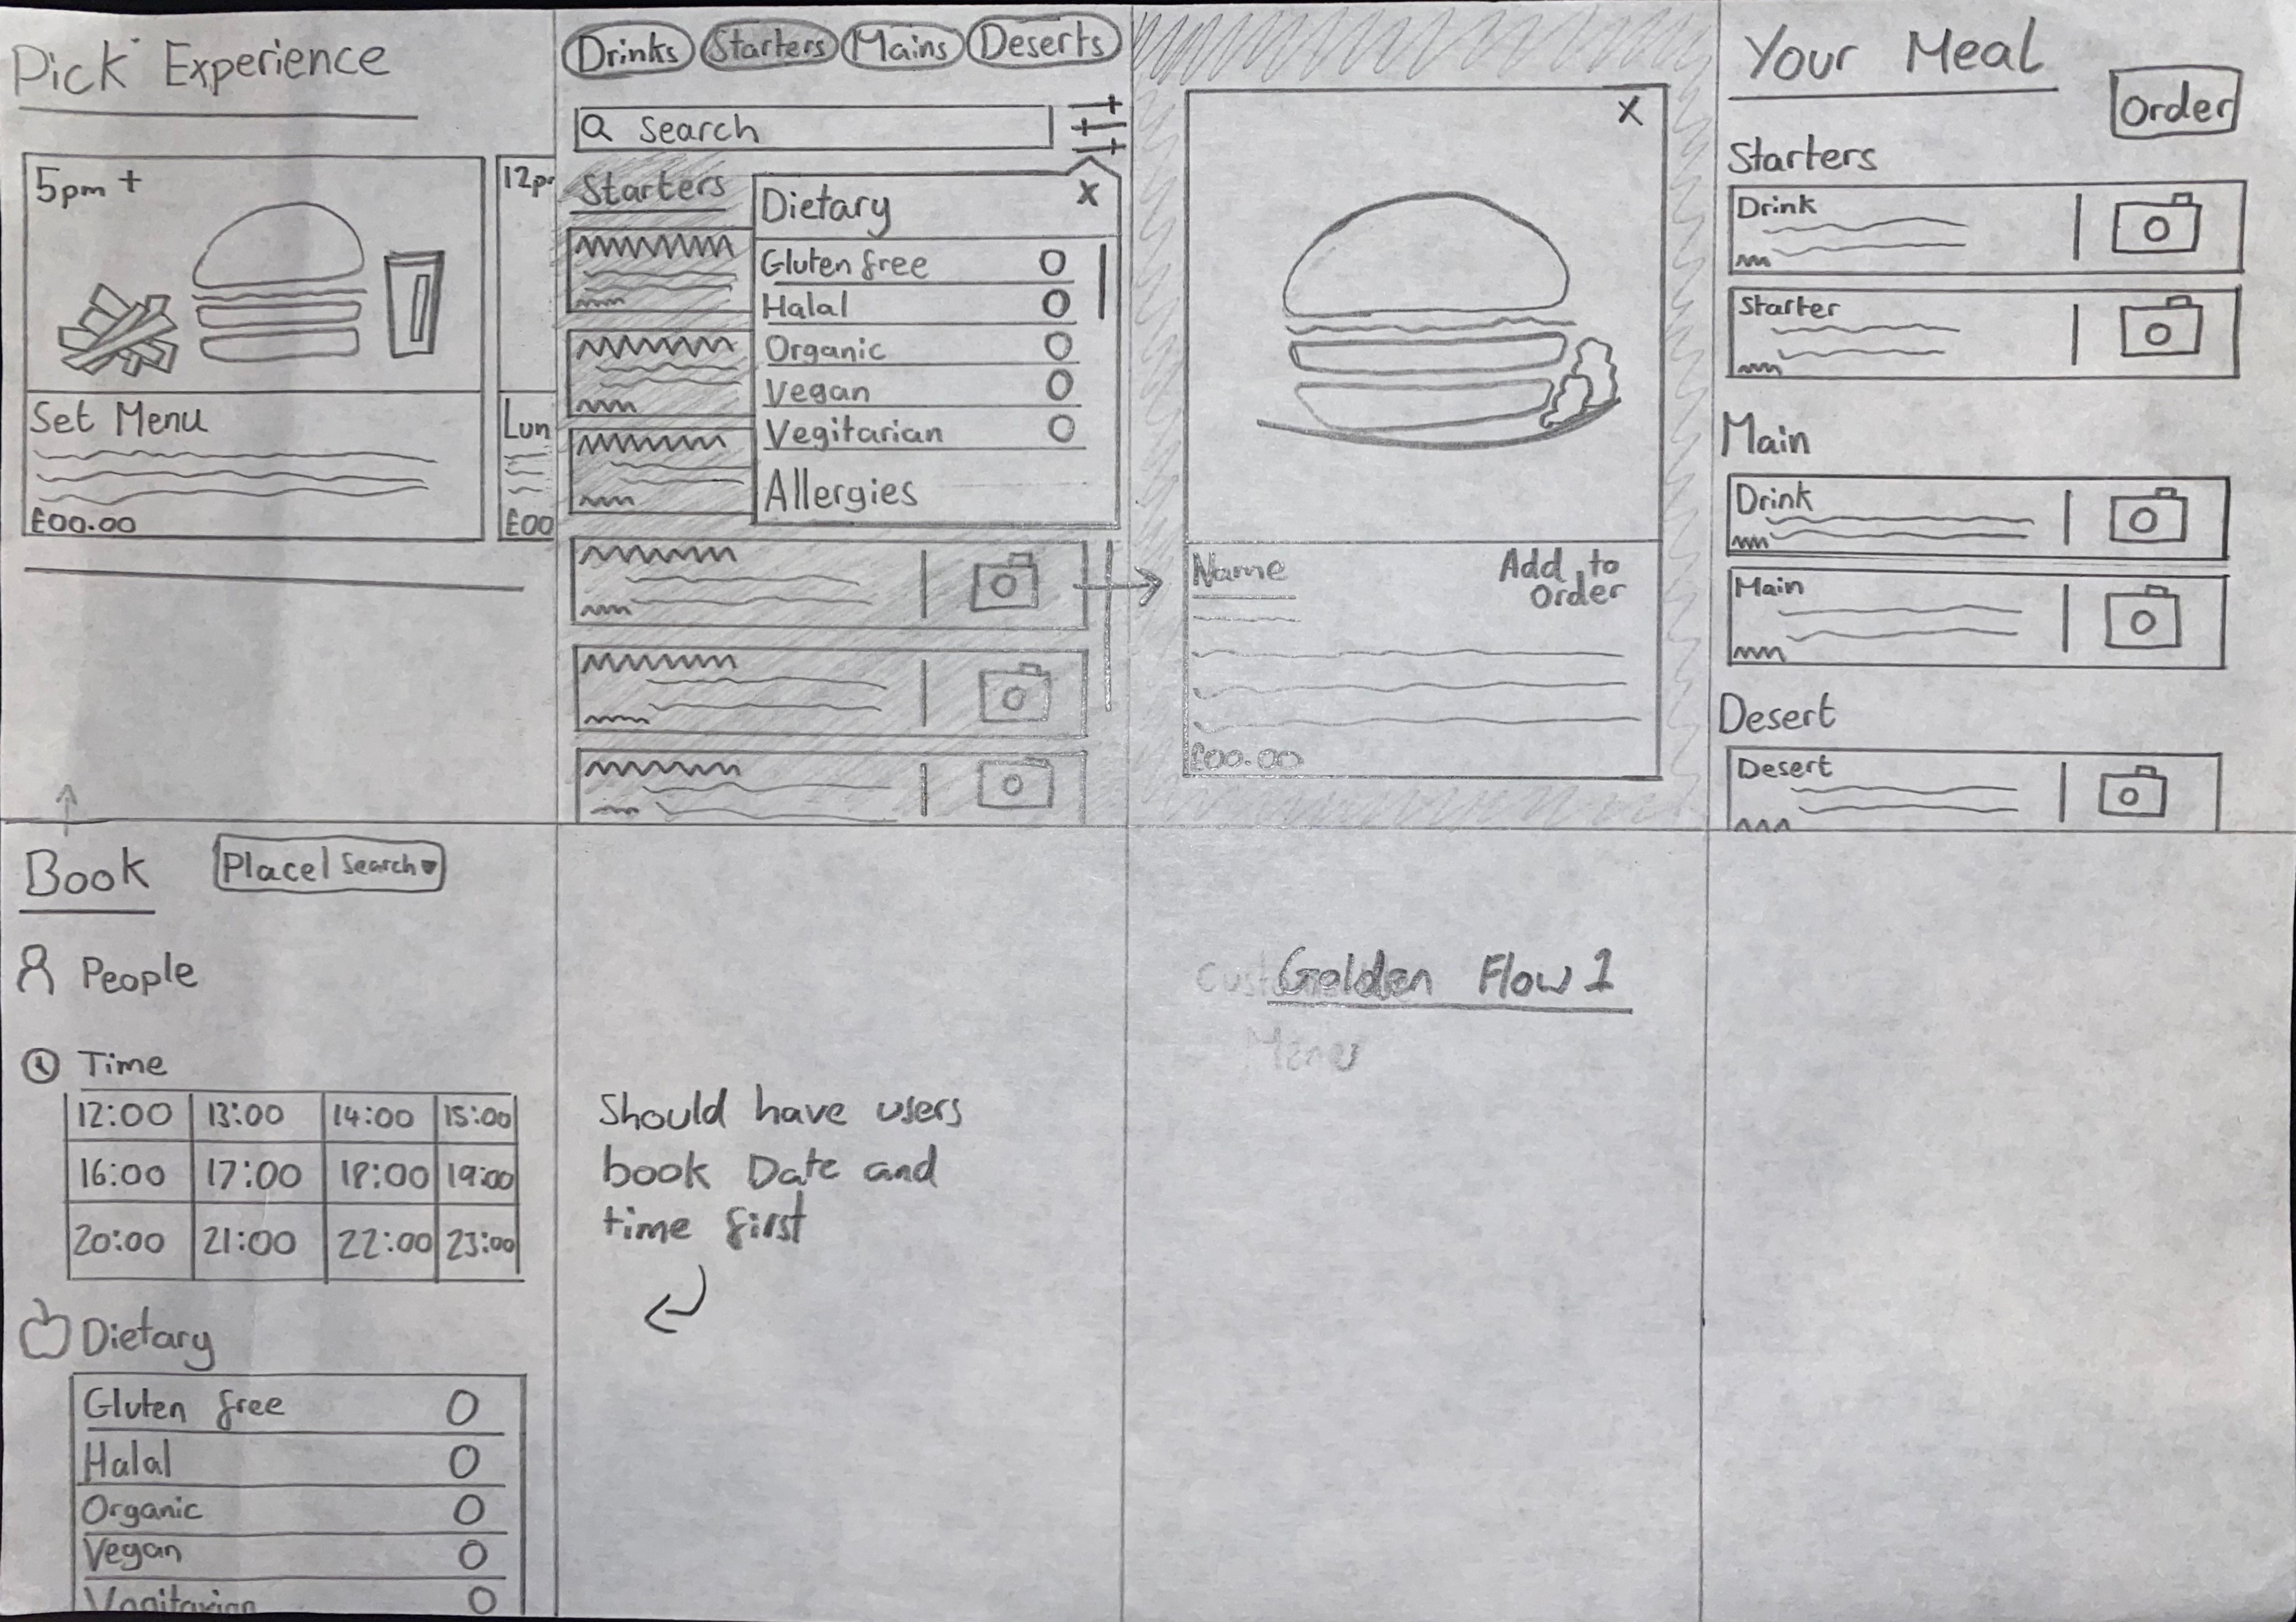 Pick Experience
5pm +
Set Menu
£00.00
12p
Lun
£00
Drinks Starters Mains Deserts
Search
Starters
Dietary X
Gluten free
Halal
Organic
Vegan
Vegitarian
Allergies
X
Name
Add to
Order
£00.00
Your Meal
Order
Starters
Drink
Starter
Main
Drink
Main
Desert
Desert
Book
Place| Search
People
Time
12:00 13:00 14:00 15:00
16:00 17:00 18:00 19:00
20:00 21:00 22:00 23:00
Dietary
Gluten free
Halal
Organic
Vegan
Vegitarian
Should have users
book Date and
time first
Golden Flow 1